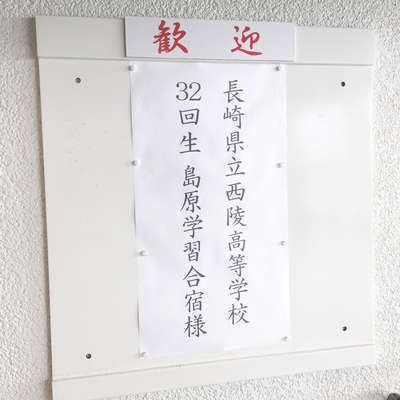 歓迎
長崎県立西陵高等学校
32回生 島原学習合宿様